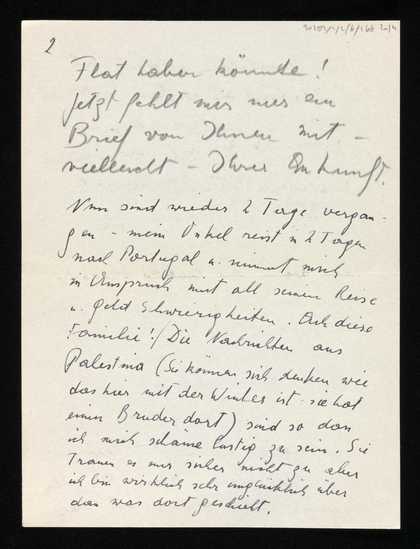 2
Flat haben könnte!
Jetzt fehlt mir nur ein
Brief von Ihnen mit –
vielleicht – Ihrer Ankunft.
Nun sind wieder 2 Tage vergan-
gen – mein Onkel reist in 2 Tagen
nach Portugal u. nimmt mich
in Anspruch mit all seinen Reise
u. Geld Schwierigkeiten. Ach diese
Familie! Die Nachrichten aus
Palestina (Sie können sich denken wie
das hier mit der Winter ist – sie hat
einen Bruder dort) sind so dan
ich mich schäme lustig zu sein. Sie
Trauen es mir sicher nicht zu aber
ich bin wirklich sehr unglücklich über
dan was dort geschieht.